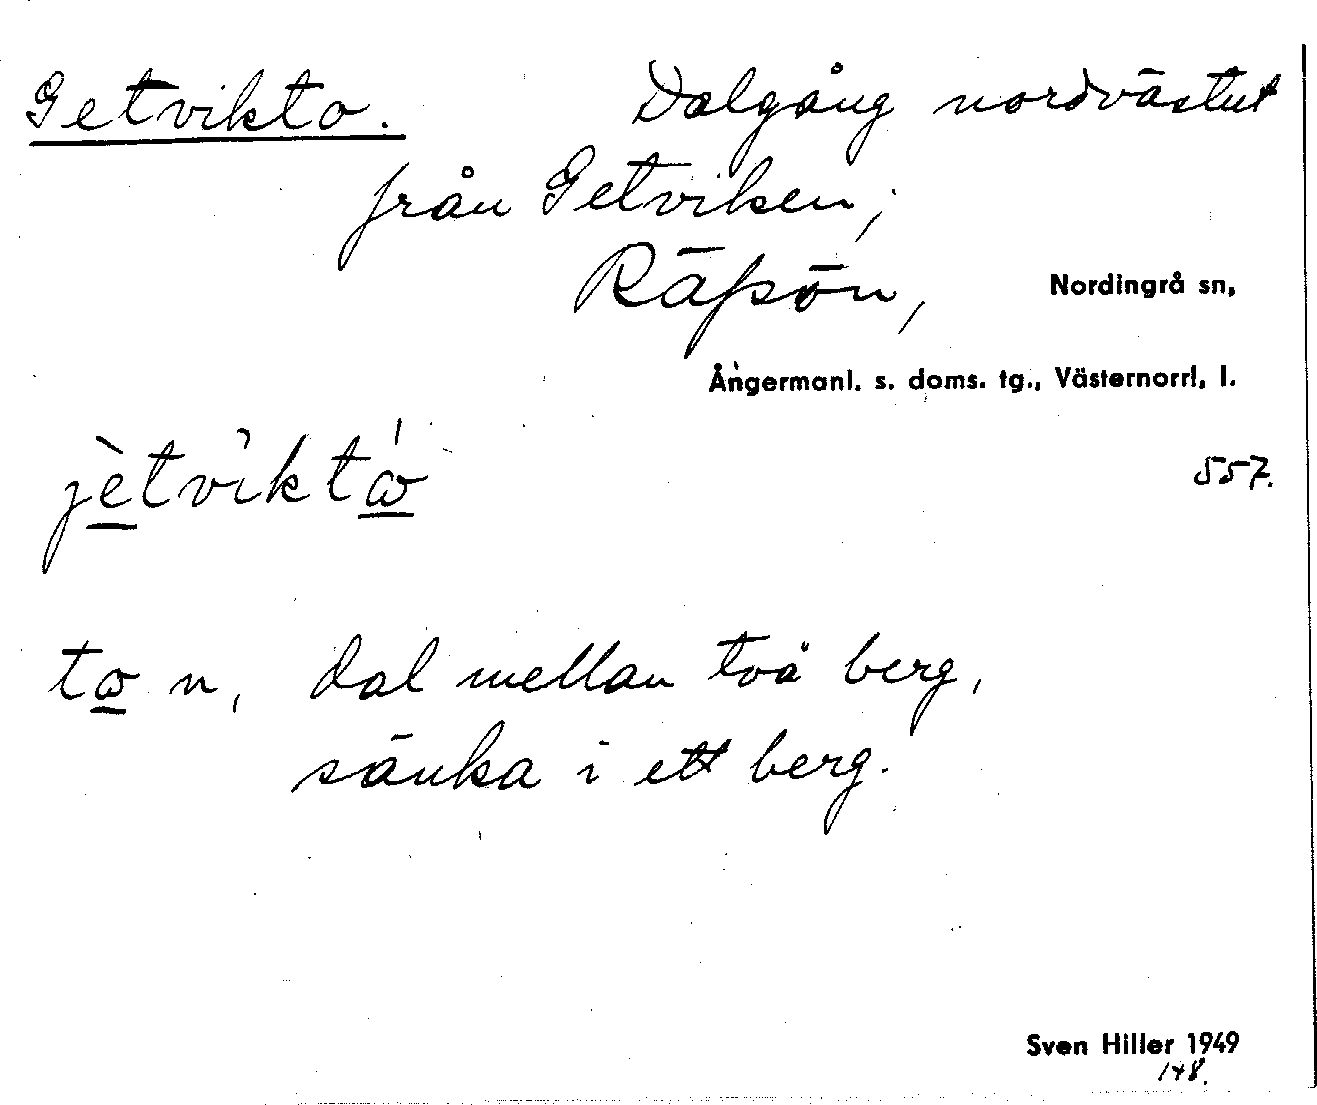 Getvikto. Dalgång nordvästut
från Getviken,
Räfsön, Nordingrå sn,
Ångermanl. s. doms. tg., Västernorrl. l.
jètviktⱷ́ 557.
tⱷ n, dal mellan två berg,
sänka i ett berg.
Sven Hiller 1949
148.